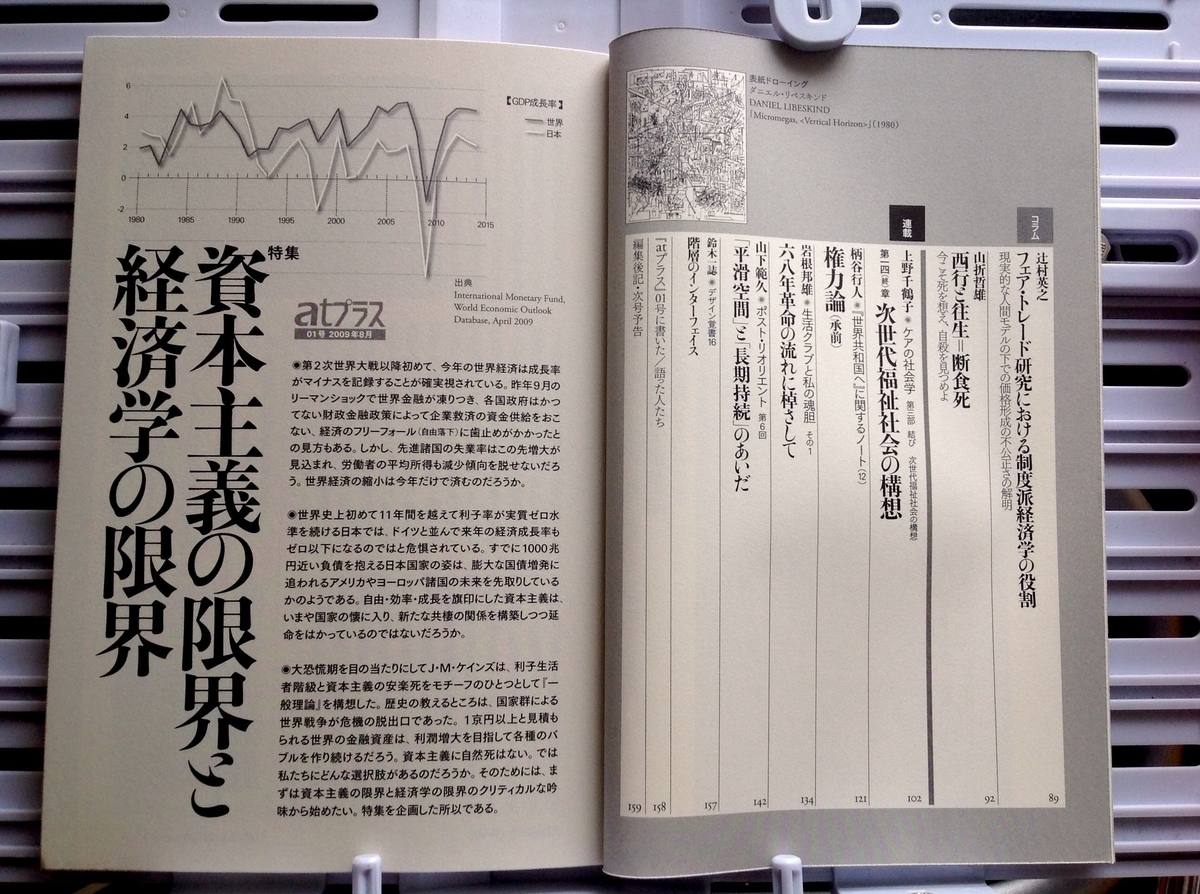 【GDP成長率】
世界
日本
6
4
2
0
-2
1980
1985
1990
1995
2000
2005
2010
2015
出典
International Monetary Fund,
World Economic Outlook
Database, April 2009
特集
資本主義の限界と
経済学の限界
atプラス
01号 2009年8月
◉第2次世界大戦以降初めて、今年の世界経済は成長率
がマイナスを記録することが確実視されている。昨年9月の
リーマンショックで世界金融が凍りつき、各国政府はかつ
てない財政金融政策によって企業救済の資金供給をおこ
ない、経済のフリーフォール(自由落下)に歯止めがかかったと
の見方もある。しかし、先進諸国の失業率はこの先増大が
見込まれ、労働者の平均所得も減少傾向を脱せないだろ
う。世界経済の縮小は今年だけで済むのだろうか。
◉世界史上初めて11年間を越えて利子率が実質ゼロ水
準を続ける日本では、ドイツと並んで来年の経済成長率も
ゼロ以下になるのではと危惧されている。すでに1000兆
円近い負債を抱える日本国家の姿は、膨大な国債増発に
追われるアメリカやヨーロッパ諸国の未来を先取りしている
かのようである。自由・効率・成長を旗印にした資本主義は、
いまや国家の懐に入り、新たな共棲の関係を構築しつつ延
命をはかっているのではないだろうか。
◉大恐慌期を目の当たりにしてJ・M・ケインズは、利子生活
者階級と資本主義の安楽死をモチーフのひとつとして『一
般理論』を構想した。歴史の教えるところは、国家群による
世界戦争が危機の脱出口であった。1京円以上と見積も
られる世界の金融資産は、利潤増大を目指して各種のバ
ブルを作り続けるだろう。資本主義に自然死はない。では
私たちにどんな選択肢があるのだろうか。そのためには、ま
ずは資本主義の限界と経済学の限界のクリティカルな吟
味から始めたい。特集を企画した所以である。
表紙ドローイング
ダニエル・リベスキンド
DANIEL LIBESKIND
「Micromegas, <Vertical Horizon>」(1980)
コラム
辻村英之
フェア・トレード研究における制度派経済学の役割
現実的な人間モデルの下での価格形成の不公正さの解明
89
山折哲雄
西行と往生=断食死
今こそ死を想え、自殺を見つめよ
92
連載
上野千鶴子◉ケアの社会学 第三部 結び 次世代福祉社会の構想
第一四(終)章 次世代福祉社会の構想
102
柄谷行人◉『世界共和国へ』に関するノート(12)
権力論(承前)
121
岩根邦雄◉生活クラブと私の魂胆 その1
六八年革命の流れに棹さして
134
山下範久◉ポスト・リオリエント 第6回
「平滑空間」と「長期持続」のあいだ
142
鈴木一誌◉デザイン覚書16
階層のインターフェイス
157
『atプラス』01号に書いた/語った人たち
158
編集後記・次号予告
159